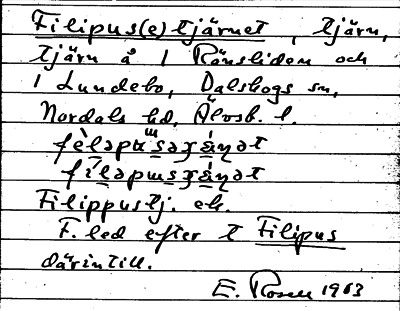 Filipus(e)tjärnet, tjärn,
tjärn å 1 Rånsliden och
1 Lundebo, Dalskogs sn,
Nordals hd, Älvsb. l.
Filippustj. ek.
F. led efter t Filipus
därintill.
E. Rosen 1963